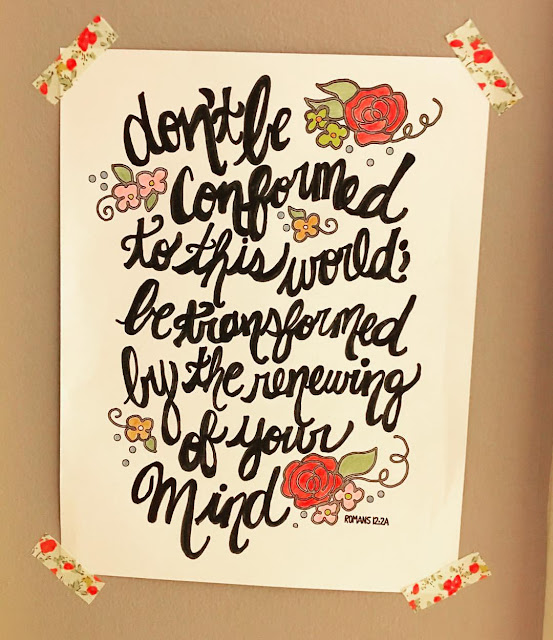 don't be
conformed
to this world;
be transformed
by the renewing
of your
Mind
ROMANS 12:2A